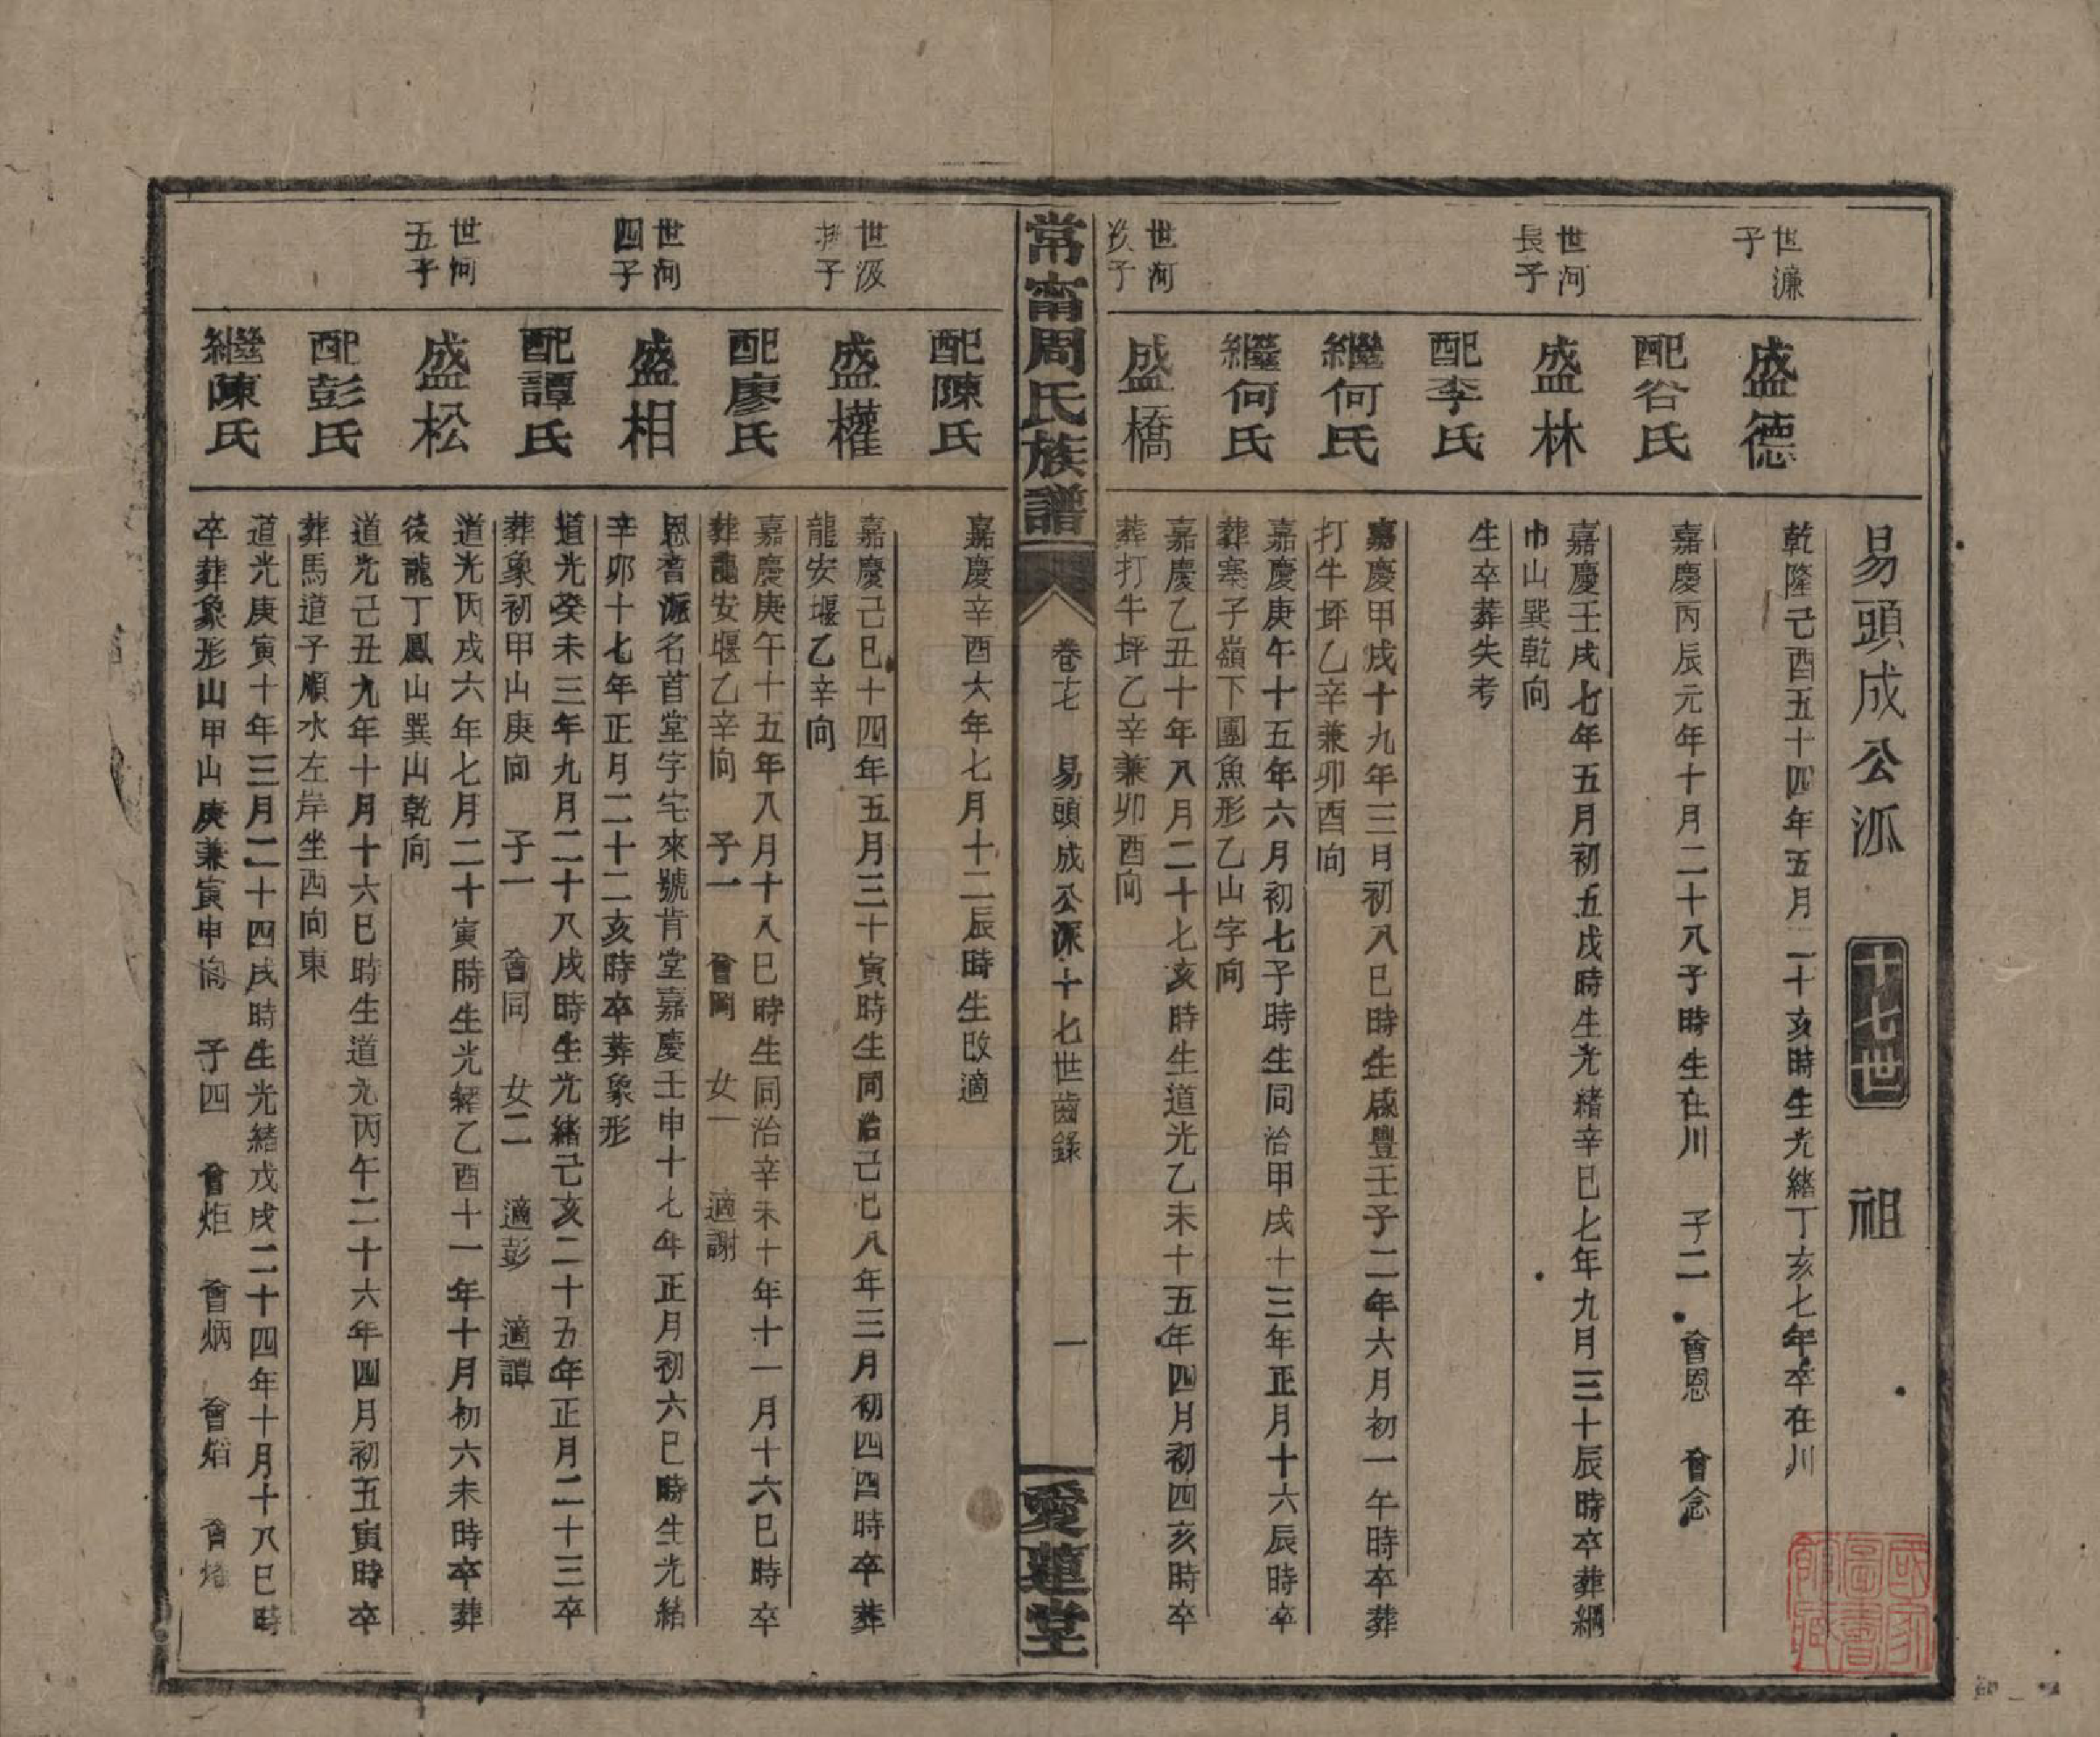 易頭成公派 十七世 祖
世濂
子
盛德
乾隆己酉五十四年五月二十亥時生光緒丁亥七年卒在川
配谷氏
嘉慶丙辰元年十月二十八子時生在川 子二 會恩 會念
世河
長子
盛林
嘉慶壬戌七年五月初五戌時生光緒辛巳七年九月三十辰時卒葬網
巾山巽乾向
配李氏
生卒葬失考
繼何氏
嘉慶甲戌十九年三月初八巳時生咸豐壬子二年六月初一午時卒葬
打牛坪乙辛兼卯酉向
繼何氏
嘉慶庚午十五年六月初七子時生同治甲戌十三年正月十六辰時卒
葬寨子嶺下團魚形乙山字向
世河
次子
盛橋
嘉慶乙丑十年八月二十七亥時生道光乙未十五年四月初四亥時卒
葬打牛坪乙辛兼卯酉向
常甯周氏族譜
卷十七 易頭成公派十七世齒錄
一
愛蓮堂
配陳氏
嘉慶辛酉六年七月十二辰時生改適
世汲
子
盛權
嘉慶己巳十四年五月三十寅時生同治己巳八年三月初四酉時卒葬
龍安堰乙辛向
配廖氏
嘉慶庚午十五年八月十八巳時生同治辛未十年十一月十六巳時卒
葬龍安堰乙辛向 子一 會 女一 適謝
世河
四子
盛相
恩耆派名首堂字宅來號肯堂嘉慶壬申十七年正月初六巳時生光緒
辛卯十七年正月二十二亥時卒葬象形
配譚氏
道光癸未三年九月二十八戌時生光緒己亥二十五年正月二十三卒
葬象初甲山庚向 子一 會同 女二 適彭 適譚
世河
五子
盛松
道光丙戌六年七月二十寅時生光緒乙酉十一年十月初六未時卒葬
後龍丁鳳山巽山乾向
配彭氏
道光己丑九年十月十六巳時生道光丙午二十六年四月初五寅時卒
葬馬道子順水左岸坐西向東
繼陳氏
道光庚寅十年三月二十四戌時生光緒戊戌二十四年十月十八巳時
卒葬象形山甲山庚兼寅申向 子四 會炬 會炳 會焰 會
國家圖書館藏